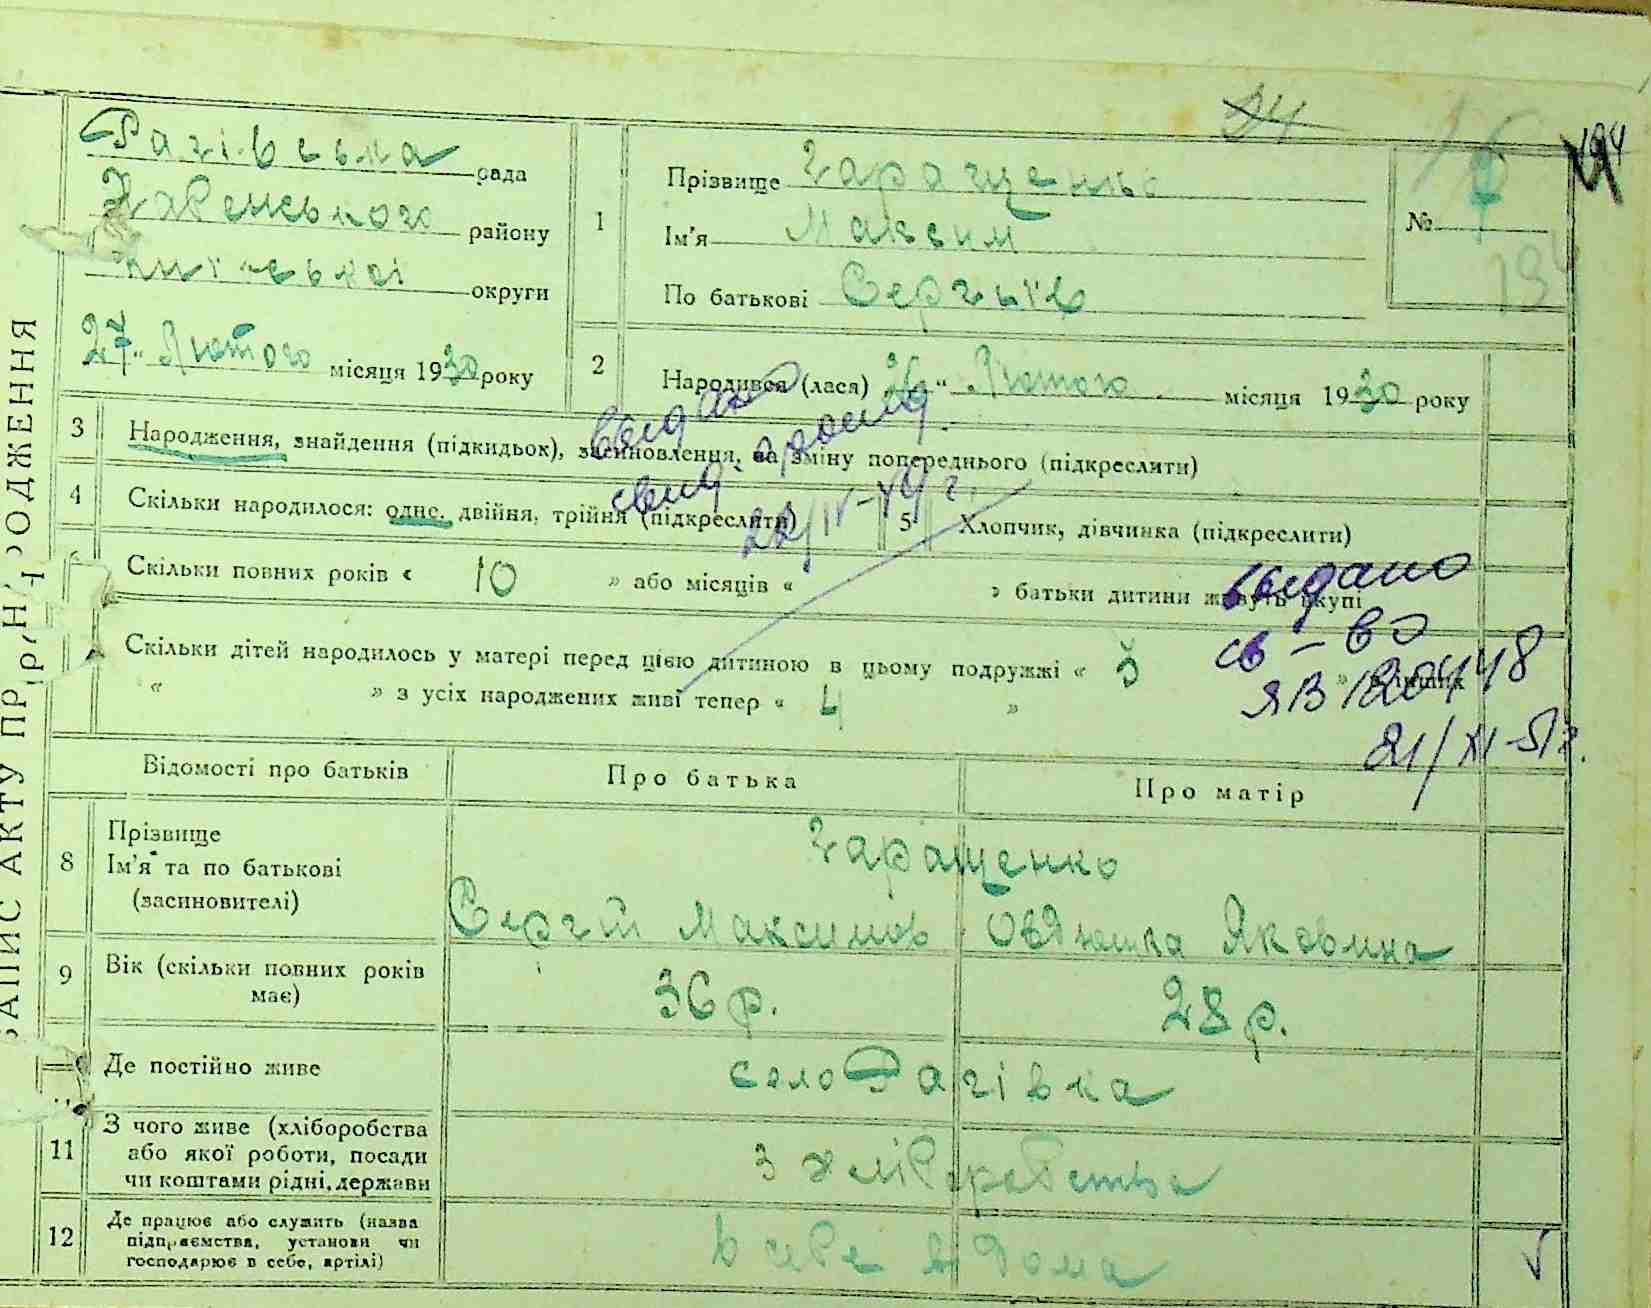 ЗАПИС АКТУ ПРО НАРОДЖЕННЯ
Рагівська рада
району
округи
27 " Лютого місяця 1930 року
1
Прізвище Гаращенко
Ім'я Максим
По батькові Сергіїв
24
194
№ 7
194
2
Народився (лася) 26 " Лютого місяця 1930 року
3 Народження, знайдення (підкидьок), засиновлення, на зміну попереднього (підкреслити)
4 Скільки народилося: одне, двійня, трійня (підкреслити)
5 Хлопчик, дівчинка (підкреслити)
Скільки повних років « 10 » або місяців « » батьки дитини живуть вкупі
Скільки дітей народилось у матері перед цією дитиною в цьому подружжі « 3 »
« » з усіх народжених живі тепер « 4 »
выдано
22/IV-49 г.
выдано
св-во
ЯВ 120448
21/XI-51г.
Відомості про батьків
Про батька
Про матір
8 Прізвище
Ім'я та по батькові
(засиновителі)
Гаращенко
Сергій Максимов Явдошка Яковлина
9 Вік (скільки повних років
має)
36 р.
28 р.
Де постійно живе
село Рагівка
11 З чого живе (хліборобства
або якої роботи, посади
чи коштами рідні, держави
з хліборобства
12 Де працює або служить (назва
підприємства, установи чи
господарює в себе, артілі)
в себе вдома